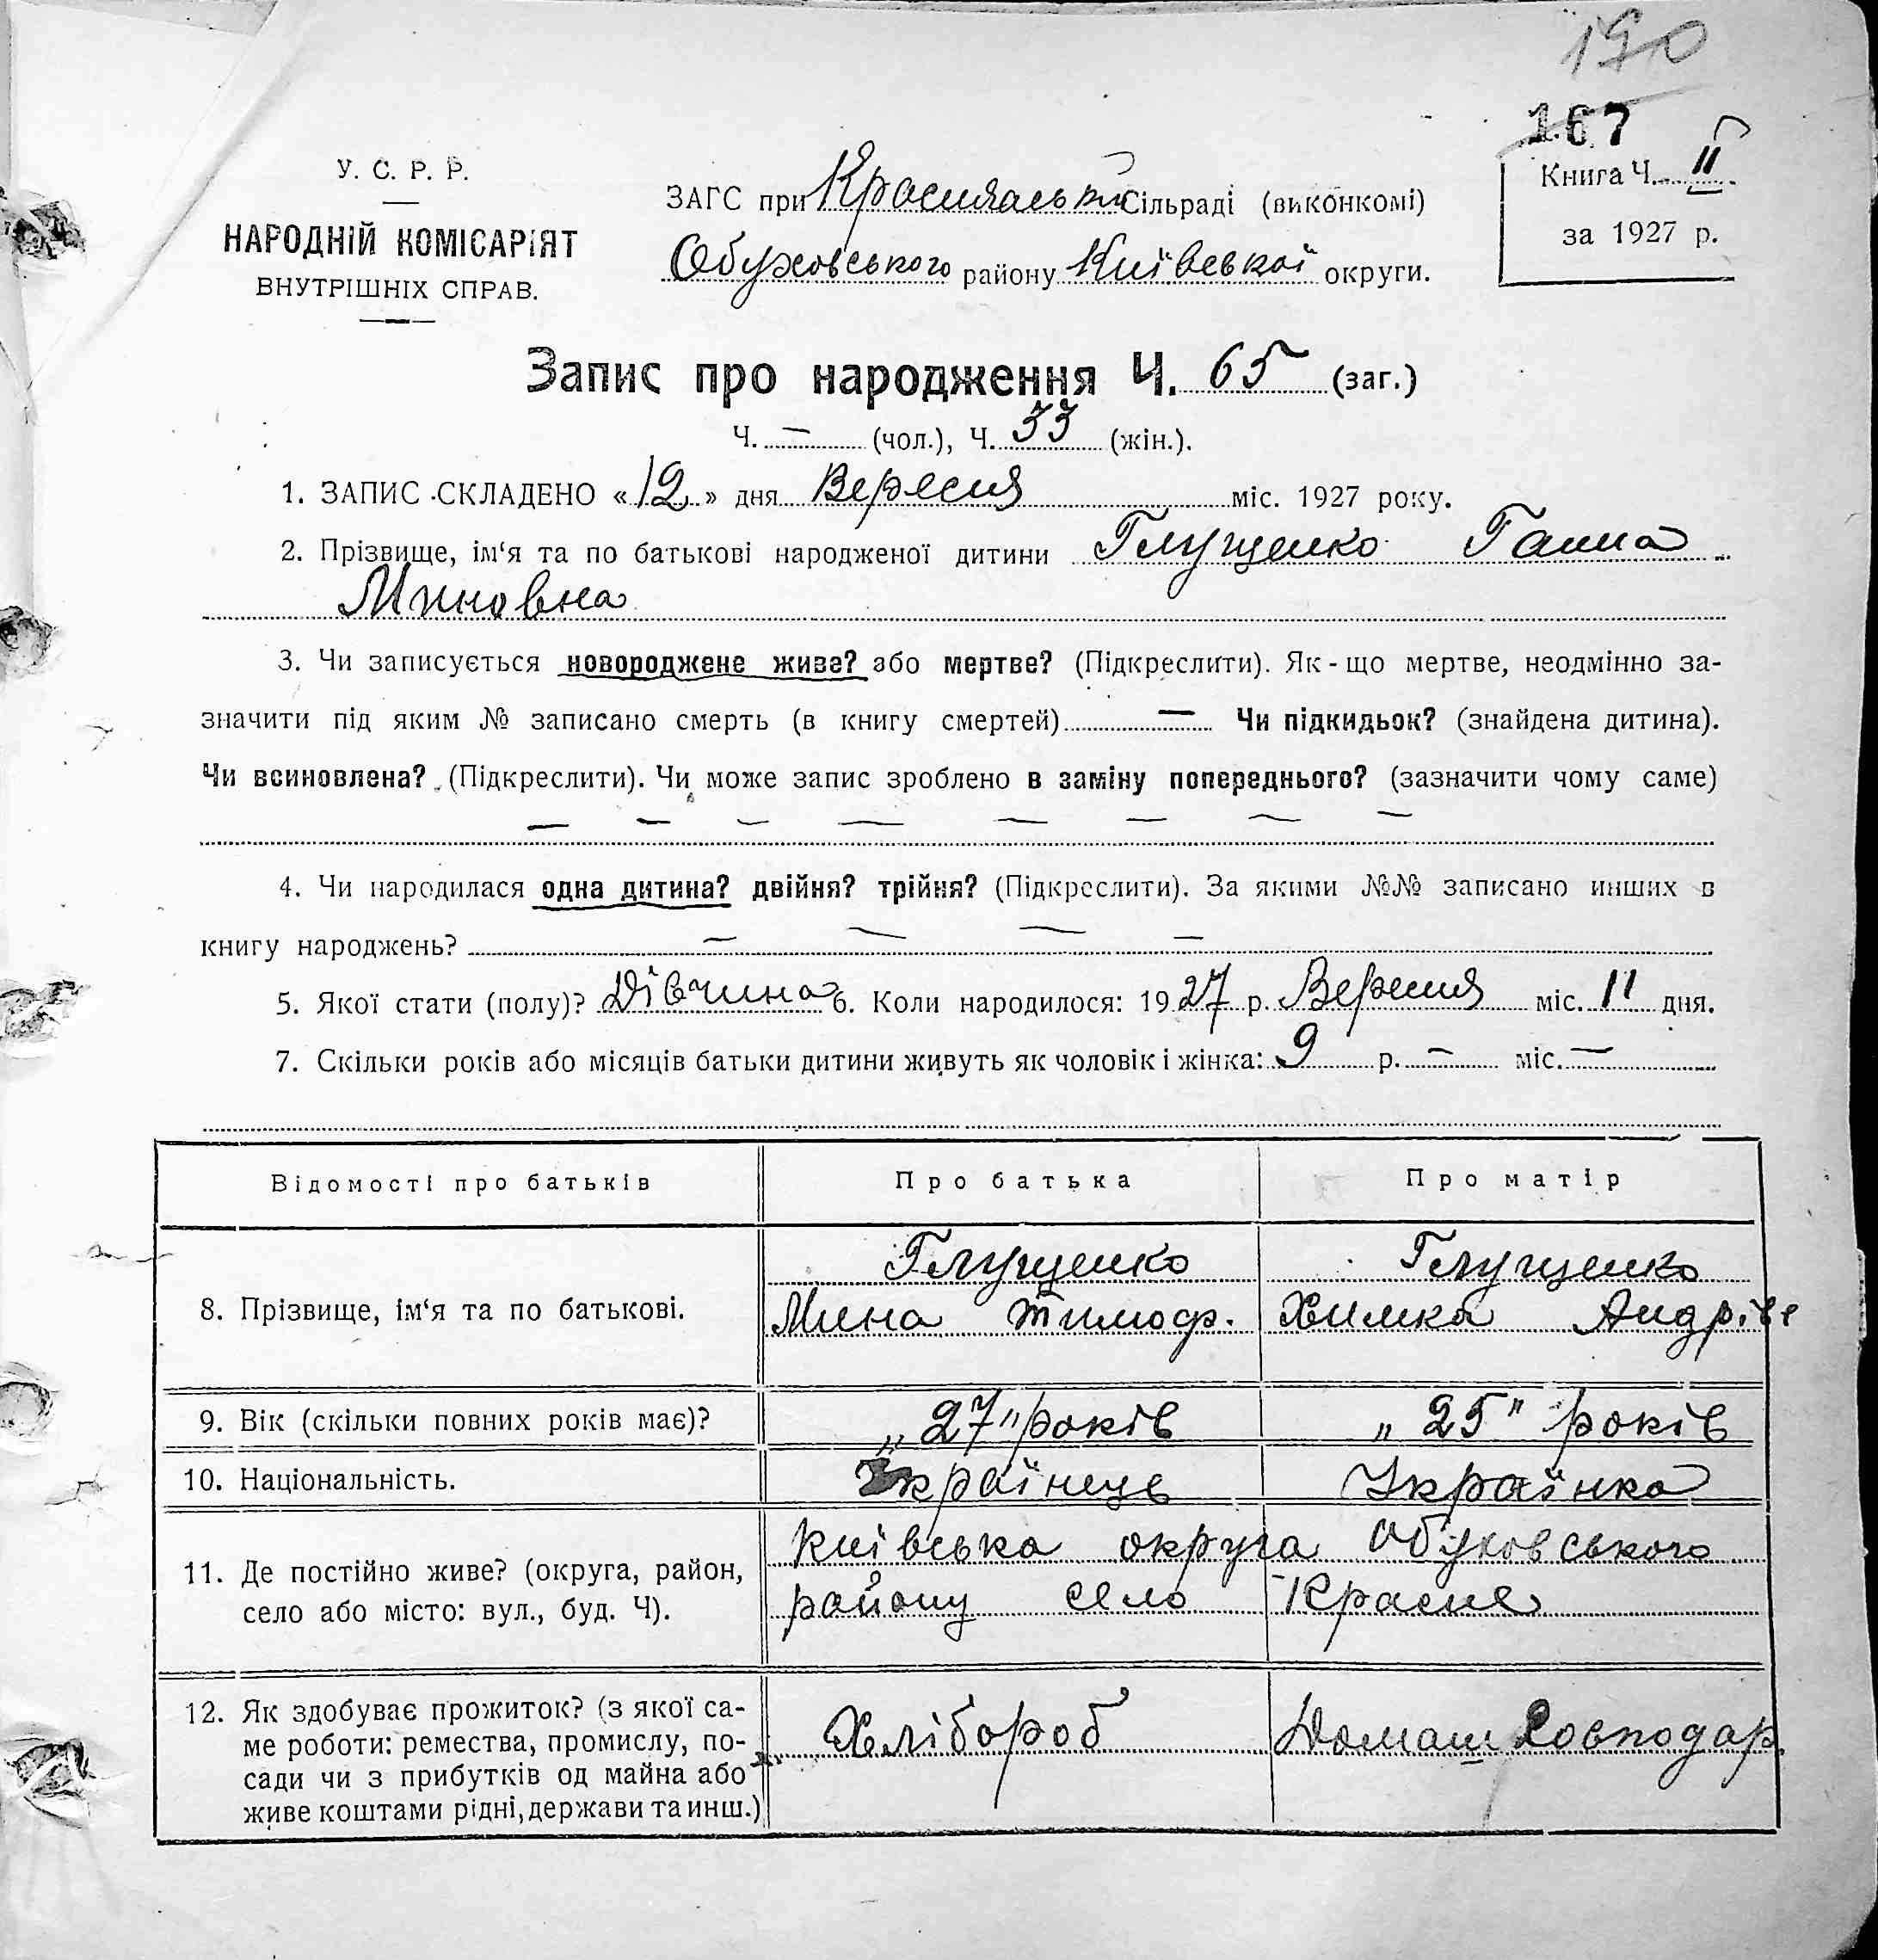 190
167
У. С. Р. Р.
НАРОДНІЙ КОМІСАРІЯТ
ВНУТРІШНІХ СПРАВ.
Книга Ч. II
за 1927 р.
ЗАГС при сільраді (виконкомі)
Обуховського району Київської округи.
Запис про народження Ч. 65 (заг.)
Ч. — (чол.), Ч. 33 (жін.).
1. ЗАПИС СКЛАДЕНО «12» дня Вересня міс. 1927 року.
2. Прізвище, ім‘я та по батькові народженої дитини Глущенко Ганна
Миновна
3. Чи записується новороджене живе? або мертве? (Підкреслити). Як-що мертве, неодмінно за-
значити під яким № записано смерть (в книгу смертей) — Чи підкидьок? (знайдена дитина).
Чи всиновлена? (Підкреслити). Чи може запис зроблено в заміну попереднього? (зазначити чому саме)
— — — — — — — —
4. Чи народилася одна дитина? двійня? трійня? (Підкреслити). За якими №№ записано инших в
книгу народжень? — — — —
5. Якої стати (полу)? Дівчина 6. Коли народилося: 1927 р. Вересня міс. 11 дня.
7. Скільки років або місяців батьки дитини живуть як чоловік і жінка: 9 р. — міс. —
Відомості про батьків Про батька Про матір
8. Прізвище, ім‘я та по батькові.
Глущенко Глущенко
Мина Тимоф. Химка Андріве
9. Вік (скільки повних років має)? „27" років „25" років
10. Національність. Українець Українка
11. Де постійно живе? (округа, район,
село або місто: вул., буд. Ч).
Київська округа Обуховського
району село Красне
12. Як здобуває прожиток? (з якої са-
ме роботи: ремества, промислу, по-
сади чи з прибутків од майна або
живе коштами рідні, держави та инш.)
Хлібороб Домаш Господар.